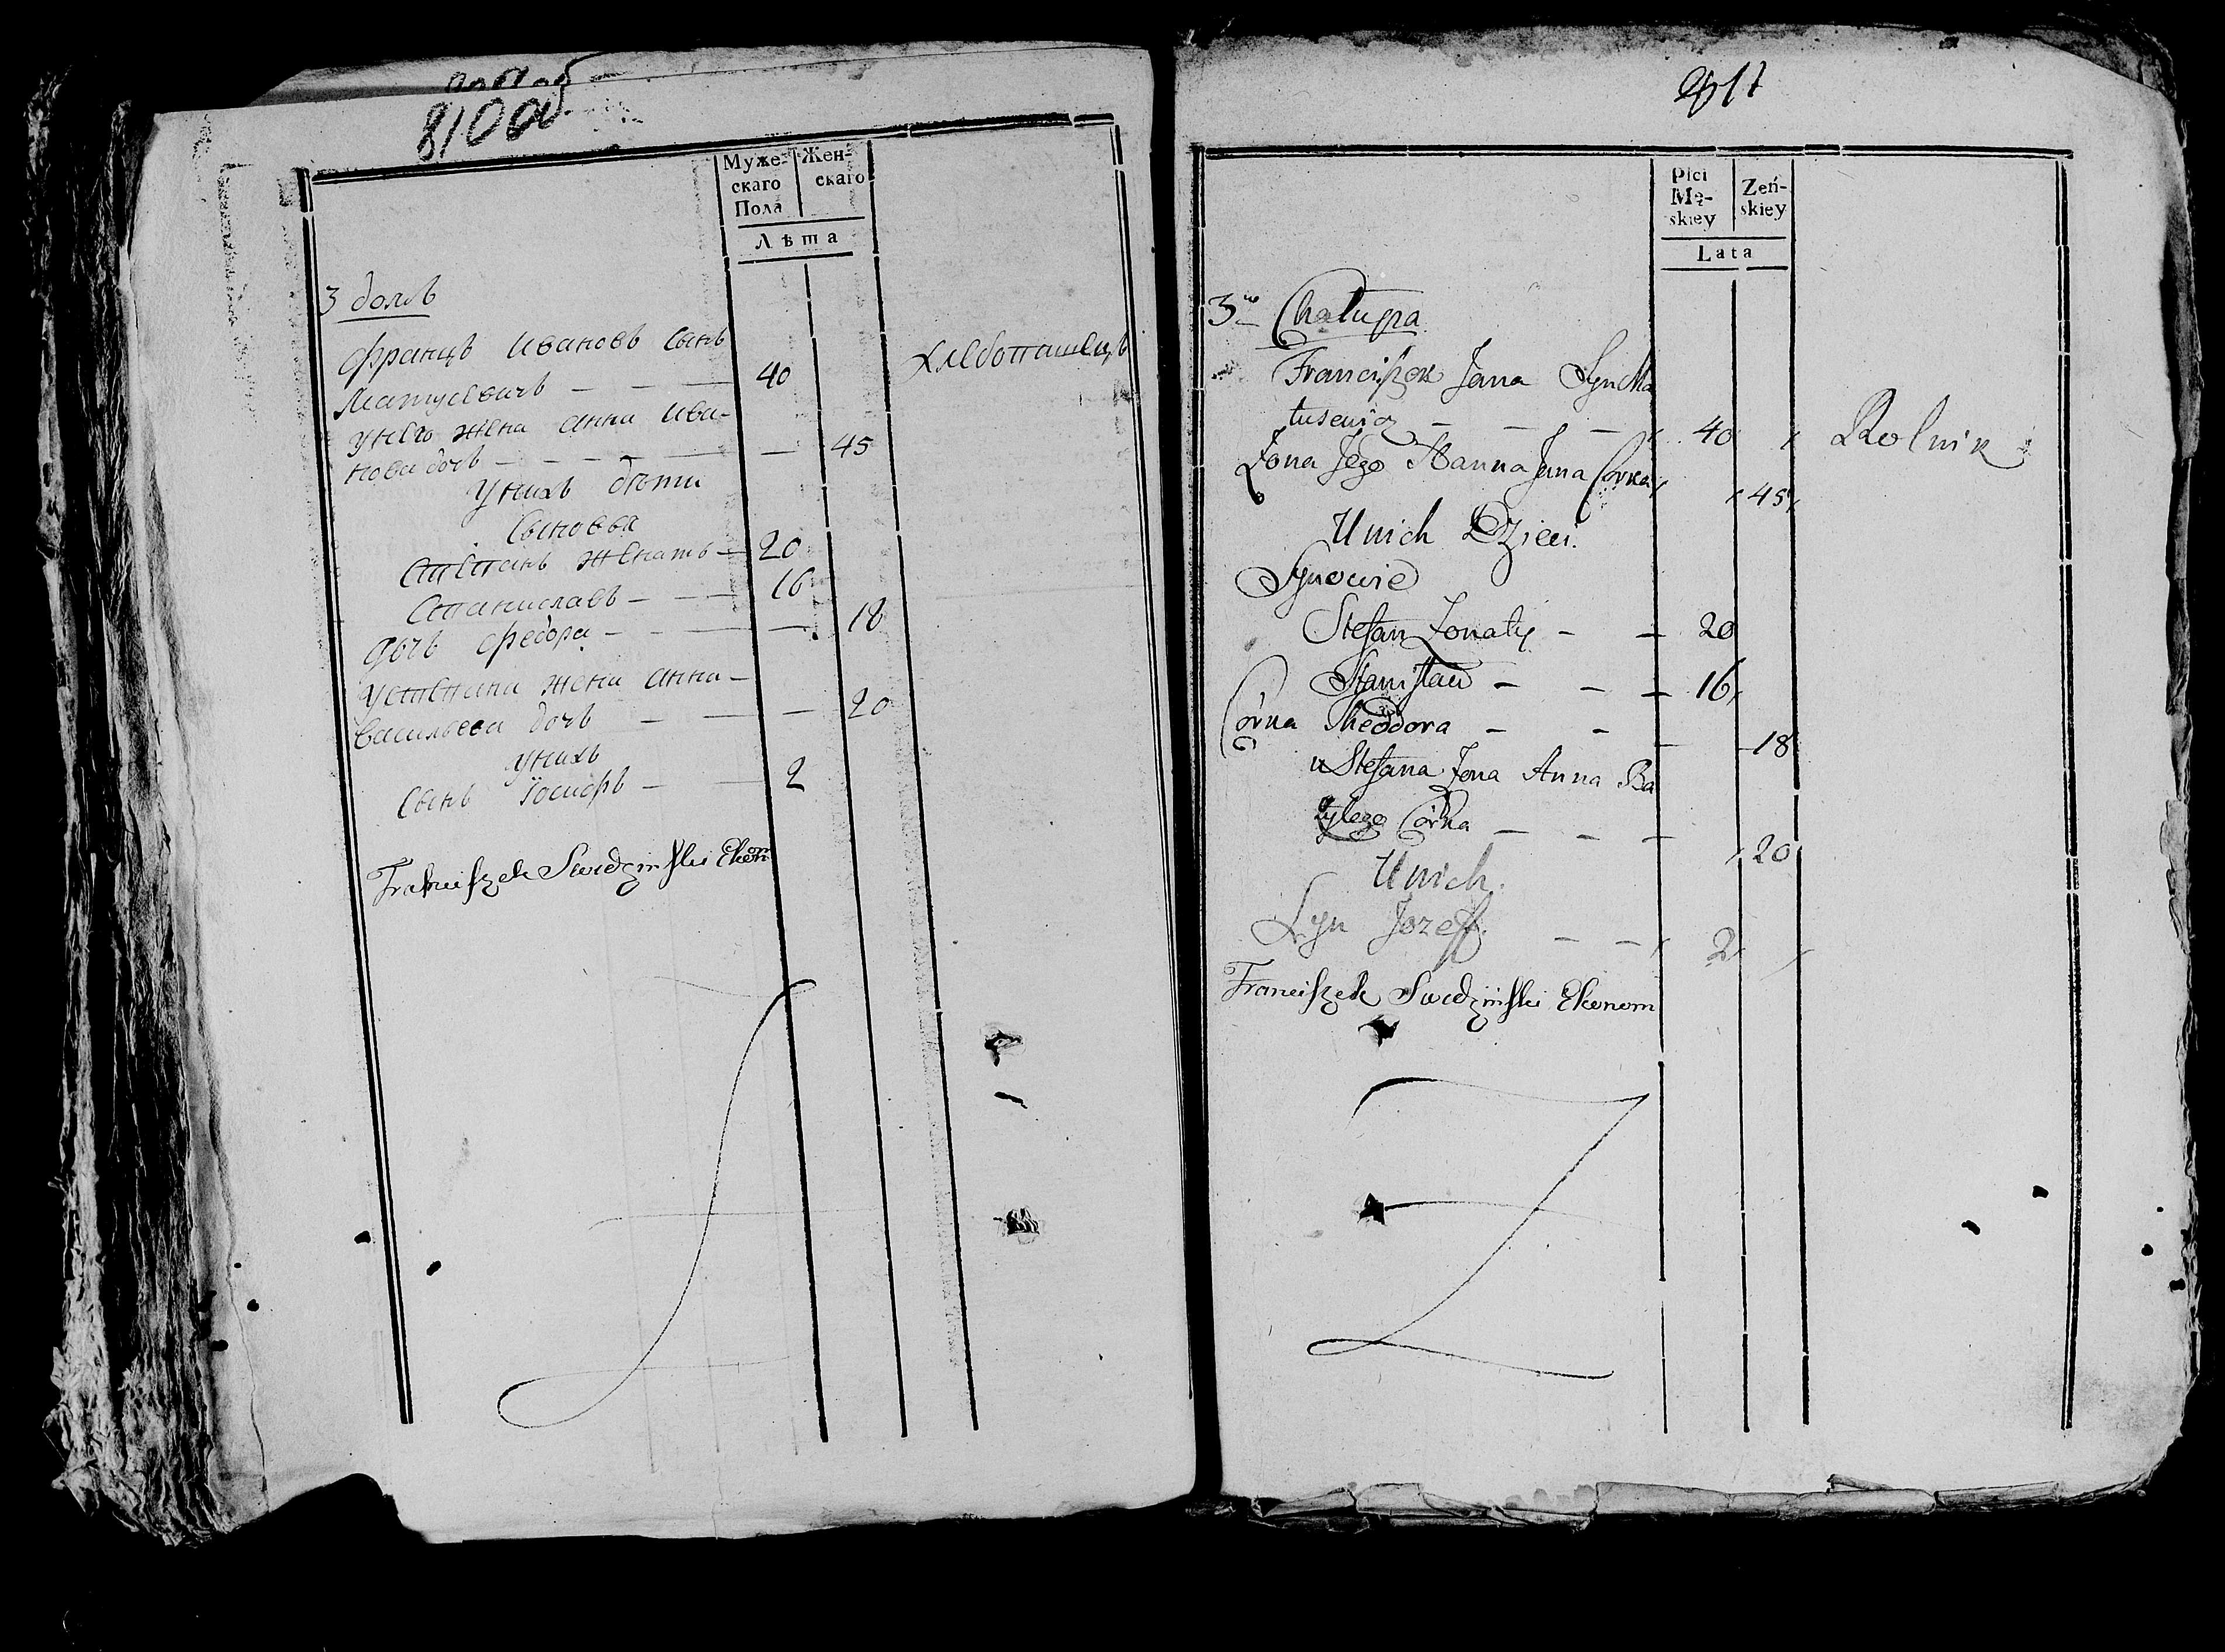 810 об
Муже-
скаго
Пола
Жен-
скаго
Лѣта
3 домъ
Францъ Ивановъ сынъ
Матусевичъ — — — 40
Хлебопашецъ
унего жена Анна Ива-
нова дочь — — — — 45
Унихъ дѣти
Сыновья
Степанъ женатъ — 20
Станиславъ — — — 16
Дочь Федора — — — — 18
Устепана жена Анна —
Васильева дочь — — — 20
Унихъ
Сынъ Іосифъ — — 2
Franciszek Swidzinski Ekon
Płci
Mę-
skiey
Zeń-
skiey
Lata
3cia Chałupa
Franciszek Jana Syn Ma
tusewicz — — — 40
Rolnik
Zona Jego Hanna Jana Córka 45
Unich Dzieci
Synowie
Stefan Zonaty — — 20
Stanisław — — — 16
Córka Theodora — — — — 18
u Stefana Zona Anna Ba
zylego Córka — — — 20
Unich.
Syn Jozeff. — — 2
Franciszek Swidzinski Ekonom